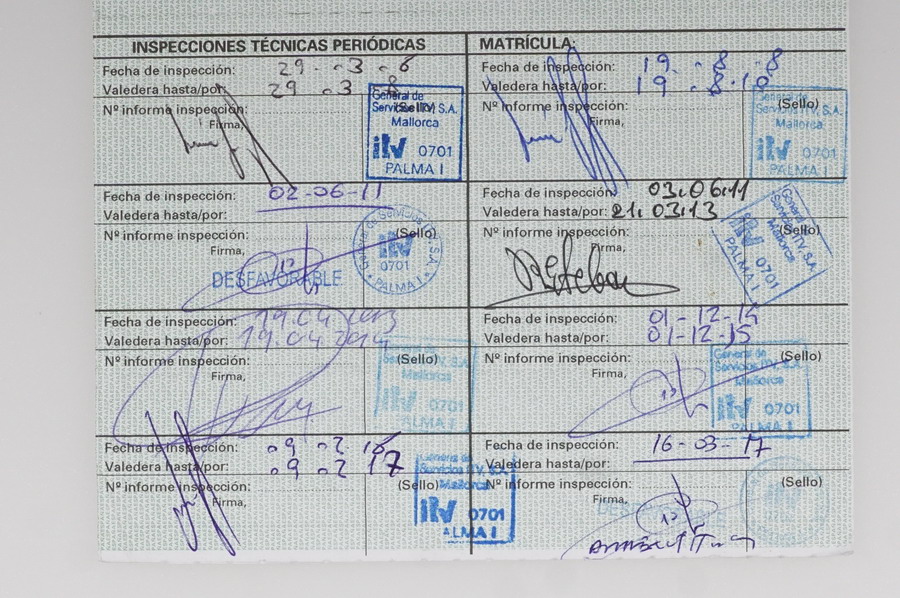 INSPECCIONES TÉCNICAS PERIÓDICAS
Fecha de inspección: 29 - 3 - 6
Valedera hasta/por: 29 - 3 - 8
Nº informe inspección: (Sello)
Firma,
General de
Servicios ITV, S.A.
Mallorca
itv 0701
PALMA I
Fecha de inspección: 02-06-11
Valedera hasta/por:
Nº informe inspección: (Sello)
Firma,
DESFAVORABLE
General de Servicios ITV, S.A.
itv
0701
PALMA I
Fecha de inspección: 19.04.2013
Valedera hasta/por: 19.04.2014
Nº informe inspección: (Sello)
Firma,
General de
Servicios ITV, S.A.
Mallorca
itv 0701
PALMA I
Fecha de inspección: 09 02 16
Valedera hasta/por: 09 02 17
Nº informe inspección: (Sello)
Firma,
General de
Servicios ITV, S.A.
Mallorca
itv 0701
PALMA I
MATRÍCULA:
Fecha de inspección: 19 - 8 - 8
Valedera hasta/por: 19 - 8 - 10
Nº informe inspección: (Sello)
Firma,
General de
Servicios ITV, S.A.
Mallorca
itv 0701
PALMA I
Fecha de inspección: 03.06.11
Valedera hasta/por: 21.03.13
Nº informe inspección: (Sello)
Firma,
General de
Servicios ITV, S.A.
Mallorca
itv 0701
PALMA I
Fecha de inspección: 01-12-14
Valedera hasta/por: 01-12-15
Nº informe inspección: (Sello)
Firma,
General de
Servicios ITV, S.A.
Mallorca
itv 0701
PALMA I
Fecha de inspección: 16-03-17
Valedera hasta/por:
Nº informe inspección: (Sello)
Firma,